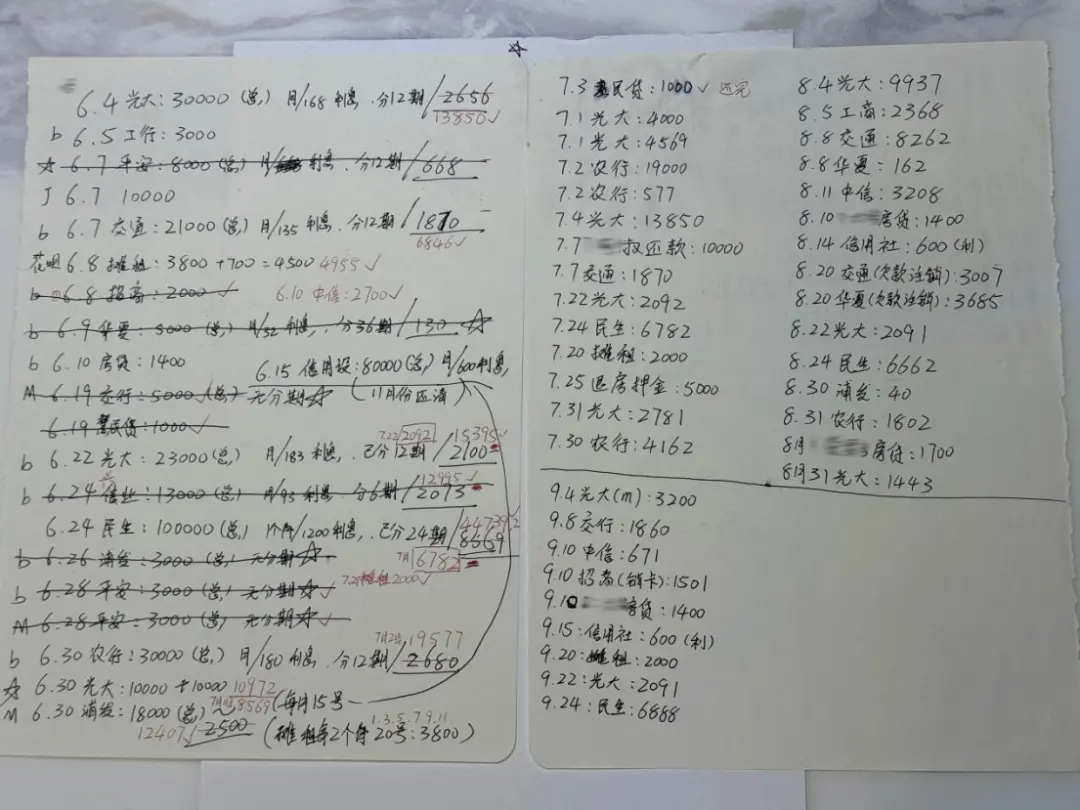 6.4 光大:30000(总) 月/168利息.分12期/2656
13850✓
b 6.5 工行:3000
☆ 6.7 平安:8000(总) 月/利息.分12期/668
J 6.7 10000
b 6.7 交通:21000(总) 月/135利息.分12期/1870
6846✓
花呗 6.8 摊租:3800+700=4500 4955✓
b 6.8 招商:2000✓ 6.10 中信:2700✓
b 6.9 华夏:5000(总) 月/32利息.分36期/130 ☆
b 6.10 房贷:1400
6.15 信用设:80000(总) 月/600利息,
M 6.19 交行:5000(总) 无分期☆ (11月份还清)
6.19 惠民贷:1000✓
7.22 2092 15395✓
b 6.22 光大:23000(总) 月/183利息.已分12期/2100
12945✓
b 6.24 兴业:13000(总) 月/93利息.分6期/2073
44739
6.24 民生:100000(总) 1个月/1200利息.已分24期/8669
7月 6782
b 6.26 浦发:3000(总) 无分期☆
7.21摊租2000✓
b 6.28 平安:3000(总) 无分期☆✓
M 6.28 平安:3000(总) 无分期☆✓
7月2日,19577
b 6.30 农行:30000(总) 月/180利息.分12期/2680
☆ 6.30 光大:10000+10000 10972
8569 (每月15号
M 6.30 浦发:18000(总)
12407✓ 2500
1.3.5.7.9.11
(摊租每2个月20号:3800)
☆
7.3 惠民贷:1000✓ 还完
7.1 光大:4000
7.1 光大:4569
7.2 农行:19000
7.2 农行:577
7.4 光大:13850
7.7 叔还款:10000
7.7 交通:1870
7.22 光大:2092
7.24 民生:6782
7.20 摊租:2000
7.25 退房押金:5000
7.31 光大:2781
7.30 农行:4162
8.4 光大:9937
8.5 工商:2368
8.8 交通:8262
8.8 华夏:162
8.11 中信:3208
8.10 房贷:1400
8.14 信用社:600(利)
8.20 交通(欠款注销):3007
8.20 华夏(欠款注销):3685
8.22 光大:2091
8.24 民生:6662
8.30 浦发:40
8.31 农行:1802
8月 房贷:1700
8月31 光大:1443
9.4 光大(m):3200
9.8 交行:1860
9.10 中信:671
9.10 招商(销卡):1501
9.10 房贷:1400
9.15:信用社:600(利)
9.20:摊租:2000
9.22:光大:2091
9.24:民生:6888